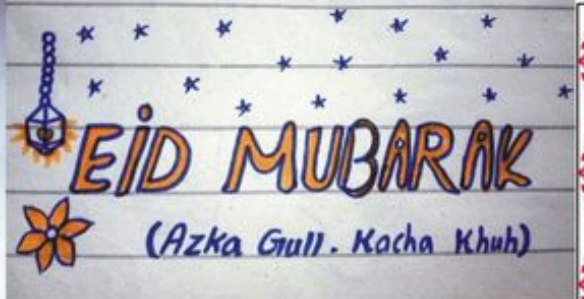 EiD MUBARAK
(Azka Gull. Kacha Khuh)